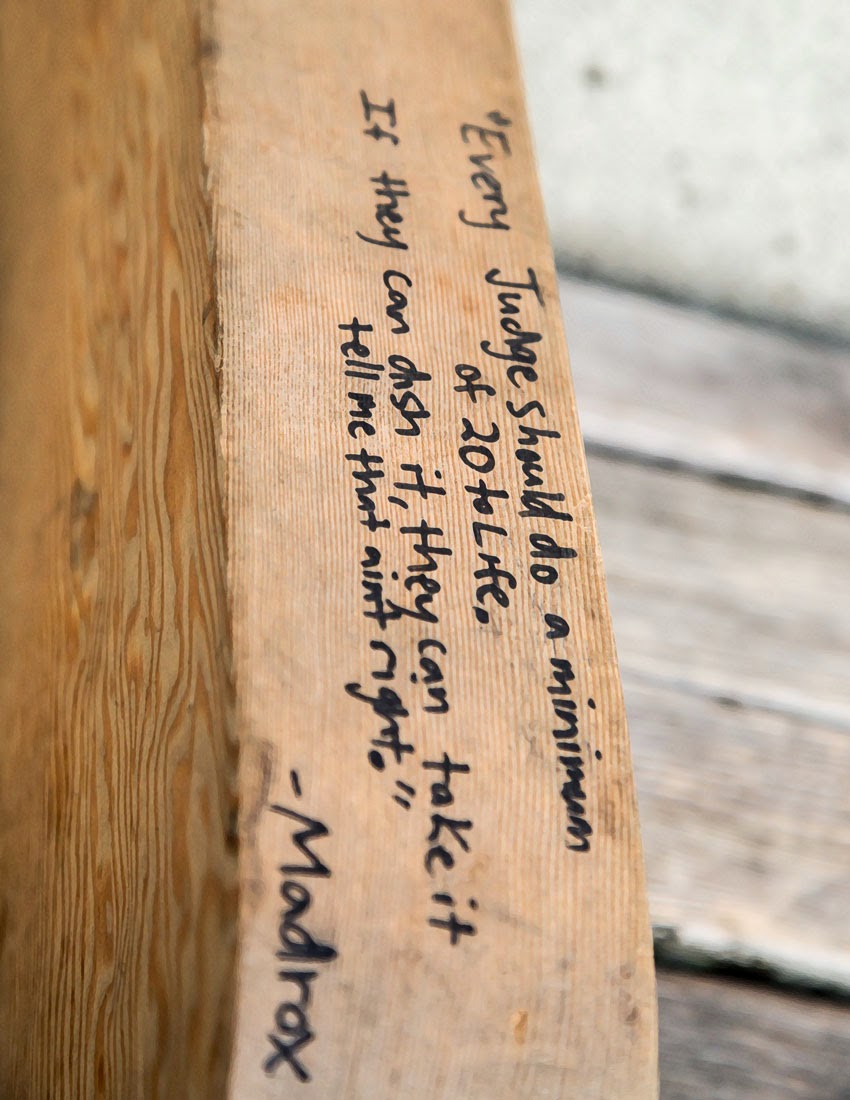 "Every Judge should do a minimum
of 20 to Life.
If they can dish it, they can take it
tell me that aint right."
-Madrox